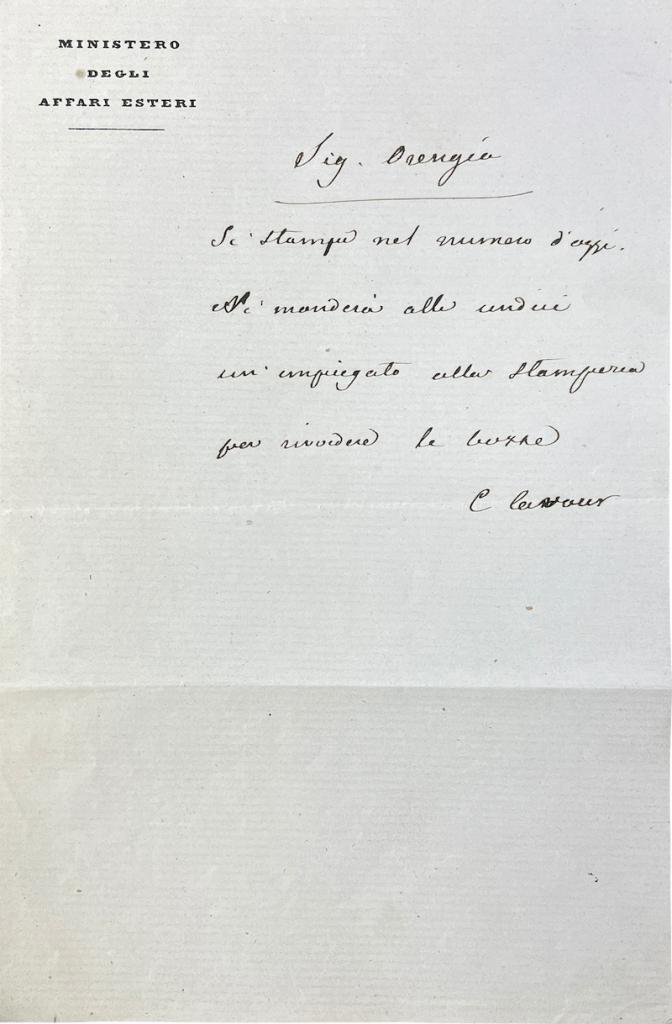 MINISTERO
DEGLI
AFFARI ESTERI
Sig. Orengia
Si stampi nel numero d'oggi.
Si manderà alle undici
un' impiegato alla stamperia
per rivedere le bozze
C Cavour